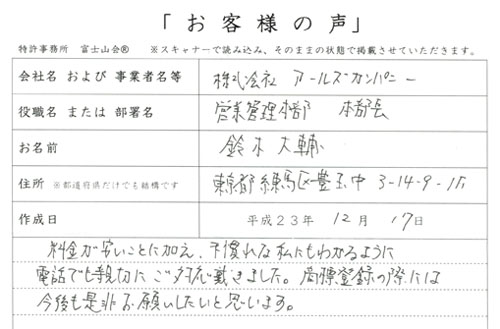 「お客様の声」
特許事務所 富士山会® ※スキャナーで読み込み、そのままの状態で掲載させていただきます。
会社名 および 事業者名等 株式会社 アールズカンパニー
役職名 または 部署名 営業管理本部 本部長
お名前 鈴木 大輔
住所 ※都道府県だけでも結構です 東京都練馬区豊玉中 3-14-9-
作成日 平成23年 12月 17日
料金が安いことに加え、不慣れな私にもわかるように
電話でも親切にご対応戴きました。商標登録の際には
今後も是非お願いしたいと思います。